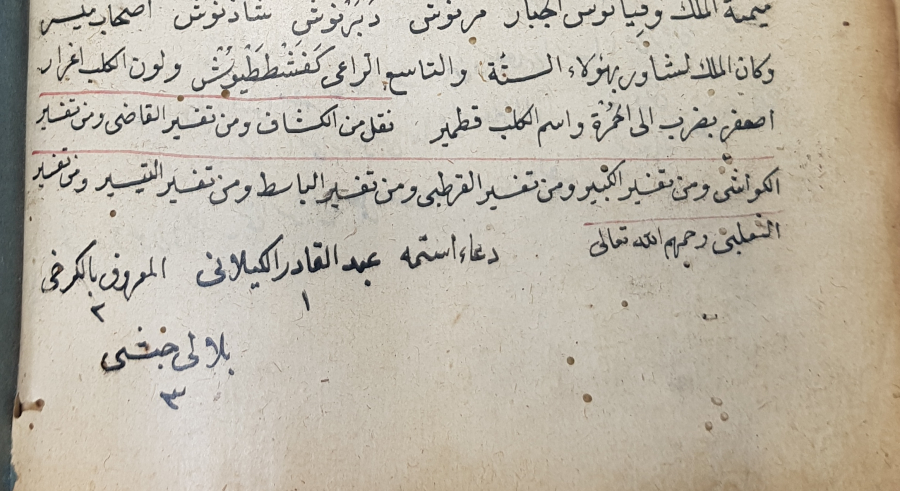 ميمنة الملك وقيانوس الجبار مرنوش دَبَرْنوش شاذنوش اصحاب
وكان الملك لشاور بهؤلاء الستّة والتاسع الراعى كَفَشْطَطْيوُشْ ولون الكلب اغرار
اصفر بضرب الى الحُمْرة واسم الكلب قطمير نقل من الكشاف ومن تفسير القاضى ومن تفسير
الكواشى ومن تفسير الكبير ومن تفسير القرطبى ومن تفسير الباسط ومن تفسير التيسير ومن تفسير
الثعلبى رحمهم الله تعالى
دعاء استمه عبد القادر الكيلانى المعروف بالكرخى
١ ٢
بلالى حبشى
٣